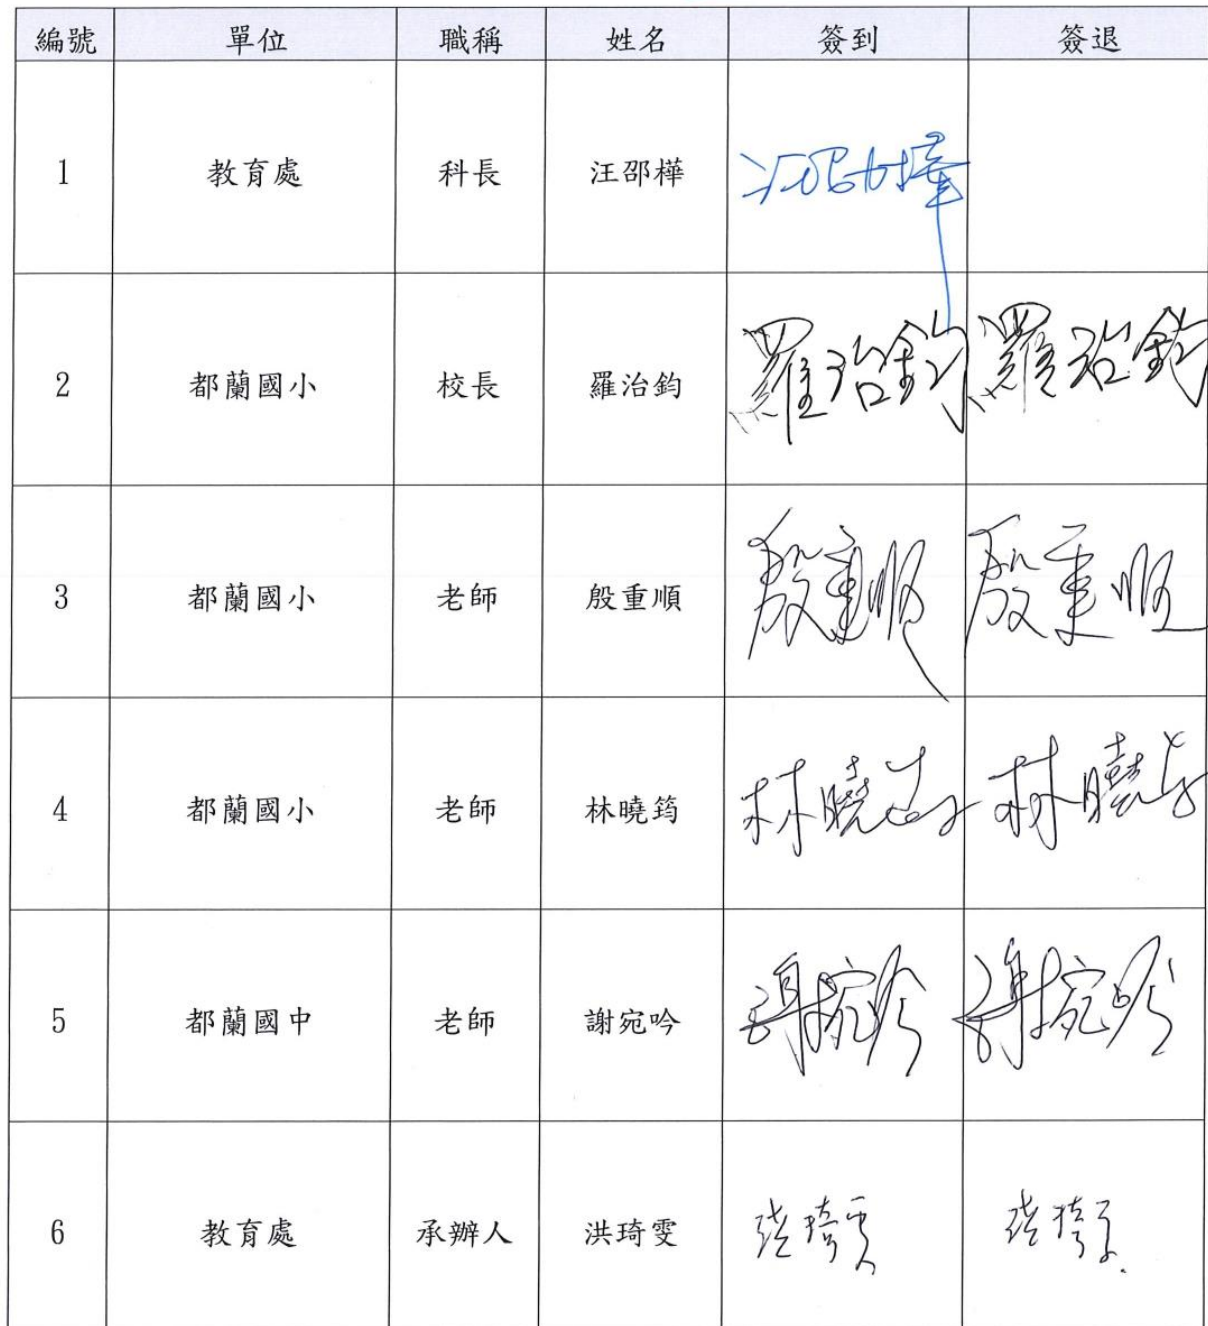 編號 單位 職稱 姓名 簽到 簽退
1 教育處 科長 汪邵樺 汪邵樺
2 都蘭國小 校長 羅治鈞 羅治鈞 羅治鈞
3 都蘭國小 老師 殷重順 殷重順 殷重順
4 都蘭國小 老師 林曉筠 林曉筠 林曉筠
5 都蘭國中 老師 謝宛吟 謝宛吟 謝宛吟
6 教育處 承辦人 洪琦雯 洪琦雯 洪琦雯